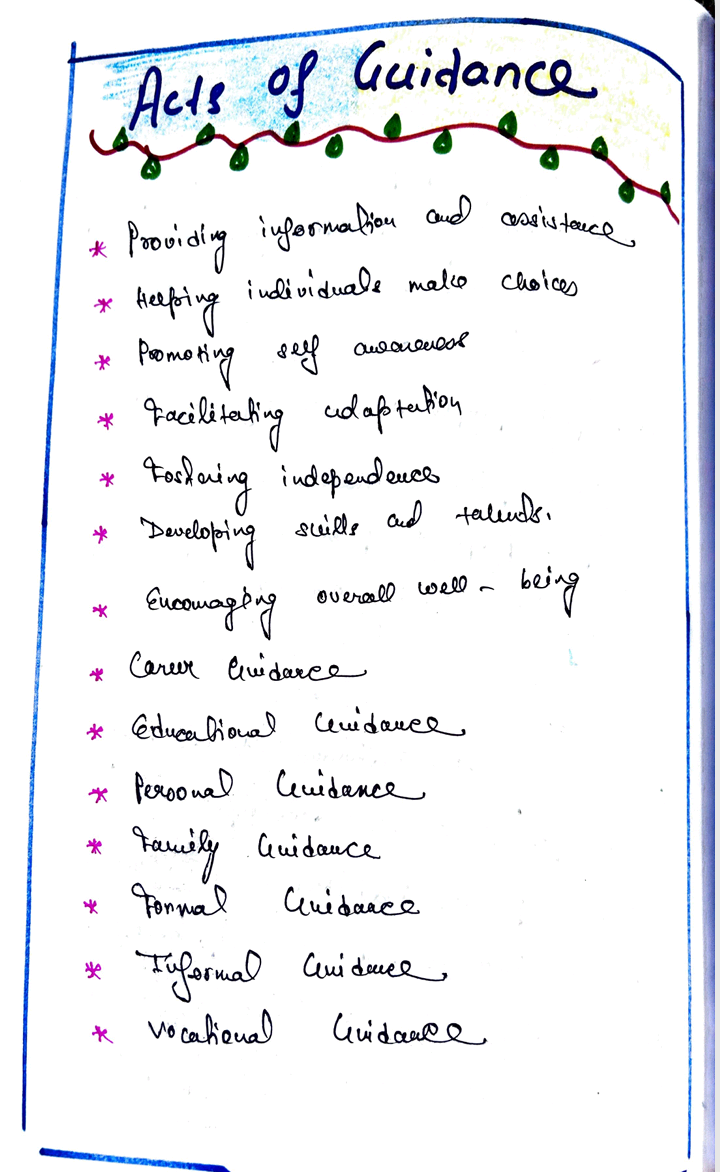 Acts of Guidance
* Providing information and assistance
* Helping individuals make choices
* Promoting self awareness
* Facilitating adaptation
* Fostering independence
* Developing skills and talents.
* Encouraging overall well-being
* Career Guidance
* Educational Guidance
* Personal Guidance
* Family Guidance
* Formal Guidance
* Informal Guidance
* Vocational Guidance